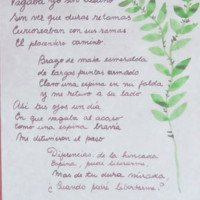 Vagaba yo sin destino
Sin ver que duras retamas
Curioseaban con sus ramas
El placentero camino.
Brazo de mata esmeralda
de largas puntas armado
Clavó una espina en mi falda
Y me retuvo a su lado
Así tus ojos un día
En que vagaba al acaso
como una espina bravía
Me detuvieron el paso
Diferencia de la hincada
Espina, pude librarme.
Mas de tu dura mirada
¿Cuándo podré libertarme?